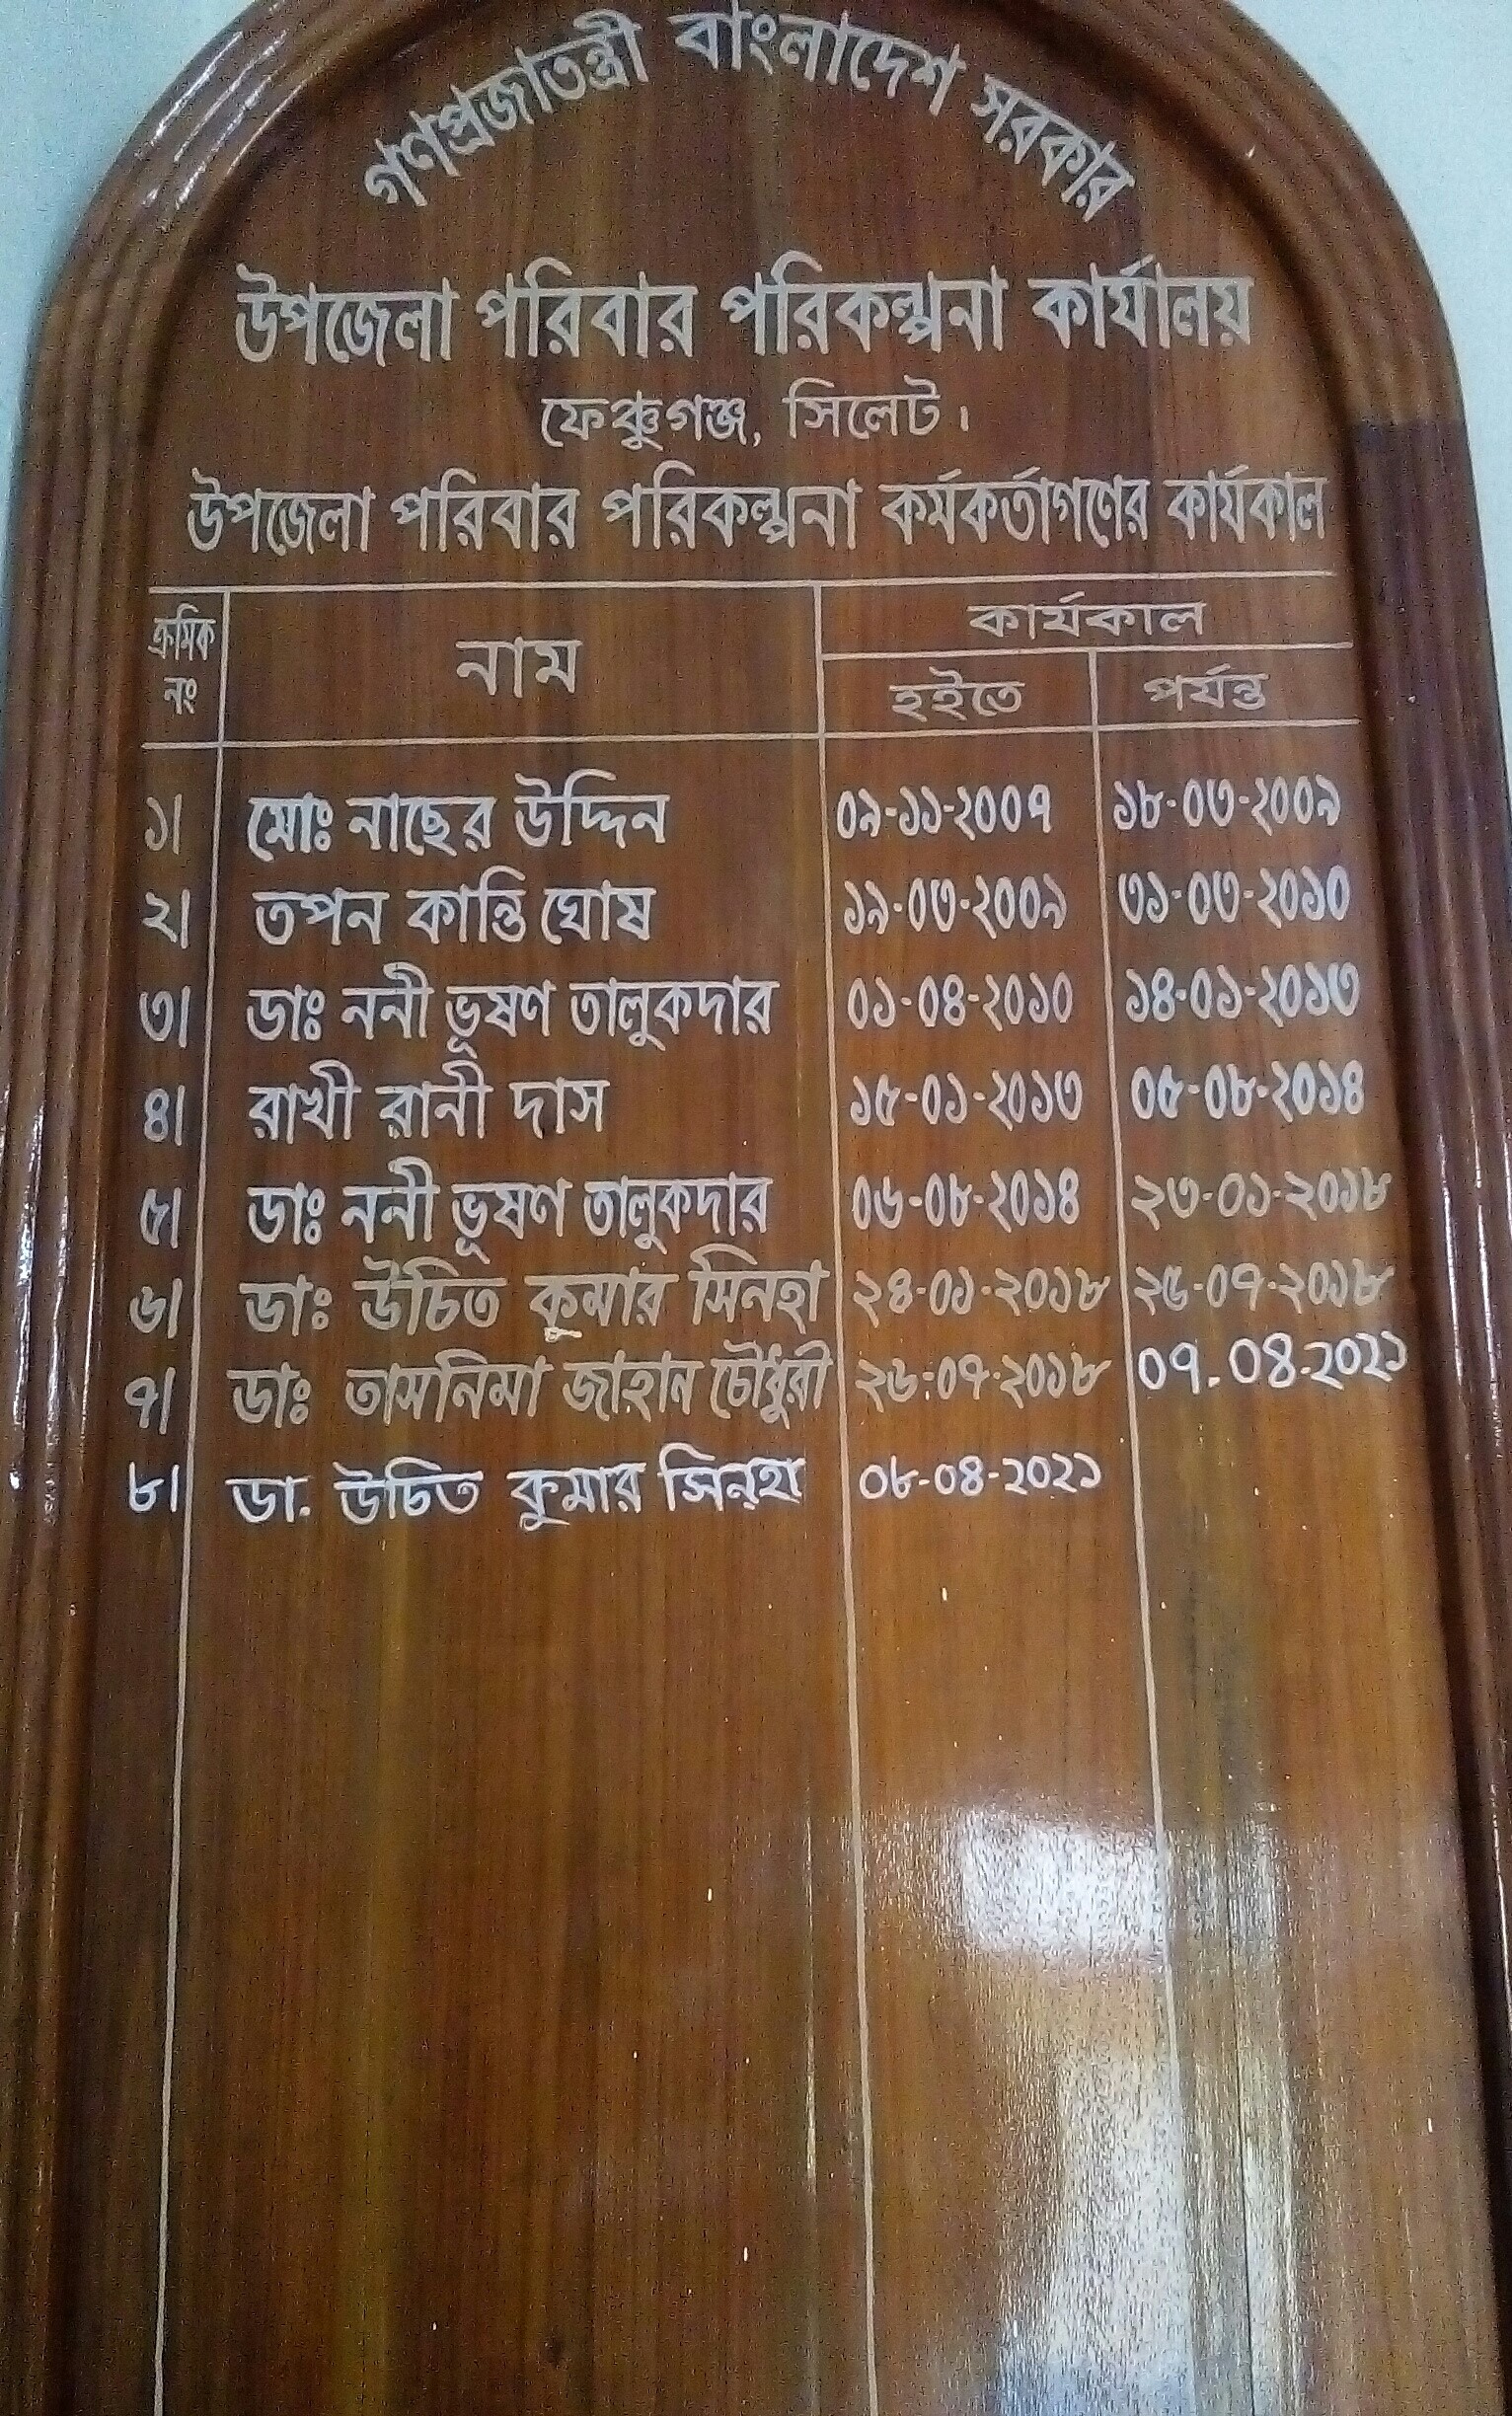 গণপ্রজাতন্ত্রী বাংলাদেশ সরকার
উপজেলা পরিবার পরিকল্পনা কার্যালয়
ফেঞ্চুগঞ্জ, সিলেট।
উপজেলা পরিবার পরিকল্পনা কর্মকর্তাগণের কার্যকাল
ক্রমিক নং নাম কার্যকাল
হইতে পর্যন্ত
১। মোঃ নাছের উদ্দিন ০৯-১১-২০০৭ ১৮-০৩-২০০৯
২। তপন কান্তি ঘোষ ১৯-০৩-২০০৯ ৩১-০৩-২০১০
৩। ডাঃ ননী ভূষণ তালুকদার ০১-০৪-২০১০ ১৪-০১-২০১৩
৪। রাখী রানী দাস ১৫-০১-২০১৩ ০৫-০৮-২০১৪
৫। ডাঃ ননী ভূষণ তালুকদার ০৬-০৮-২০১৪ ২৩-০১-২০১৮
৬। ডাঃ উচিত কুমার সিনহা ২৪-০১-২০১৮ ২৫-০৭-২০১৮
৭। ডাঃ তাসনিমা জাহান চৌধুরী ২৬-০৭-২০১৮ ০৭.০৪.২০২১
৮। ডা. উচিত কুমার সিন্হা ০৮-০৪-২০২১